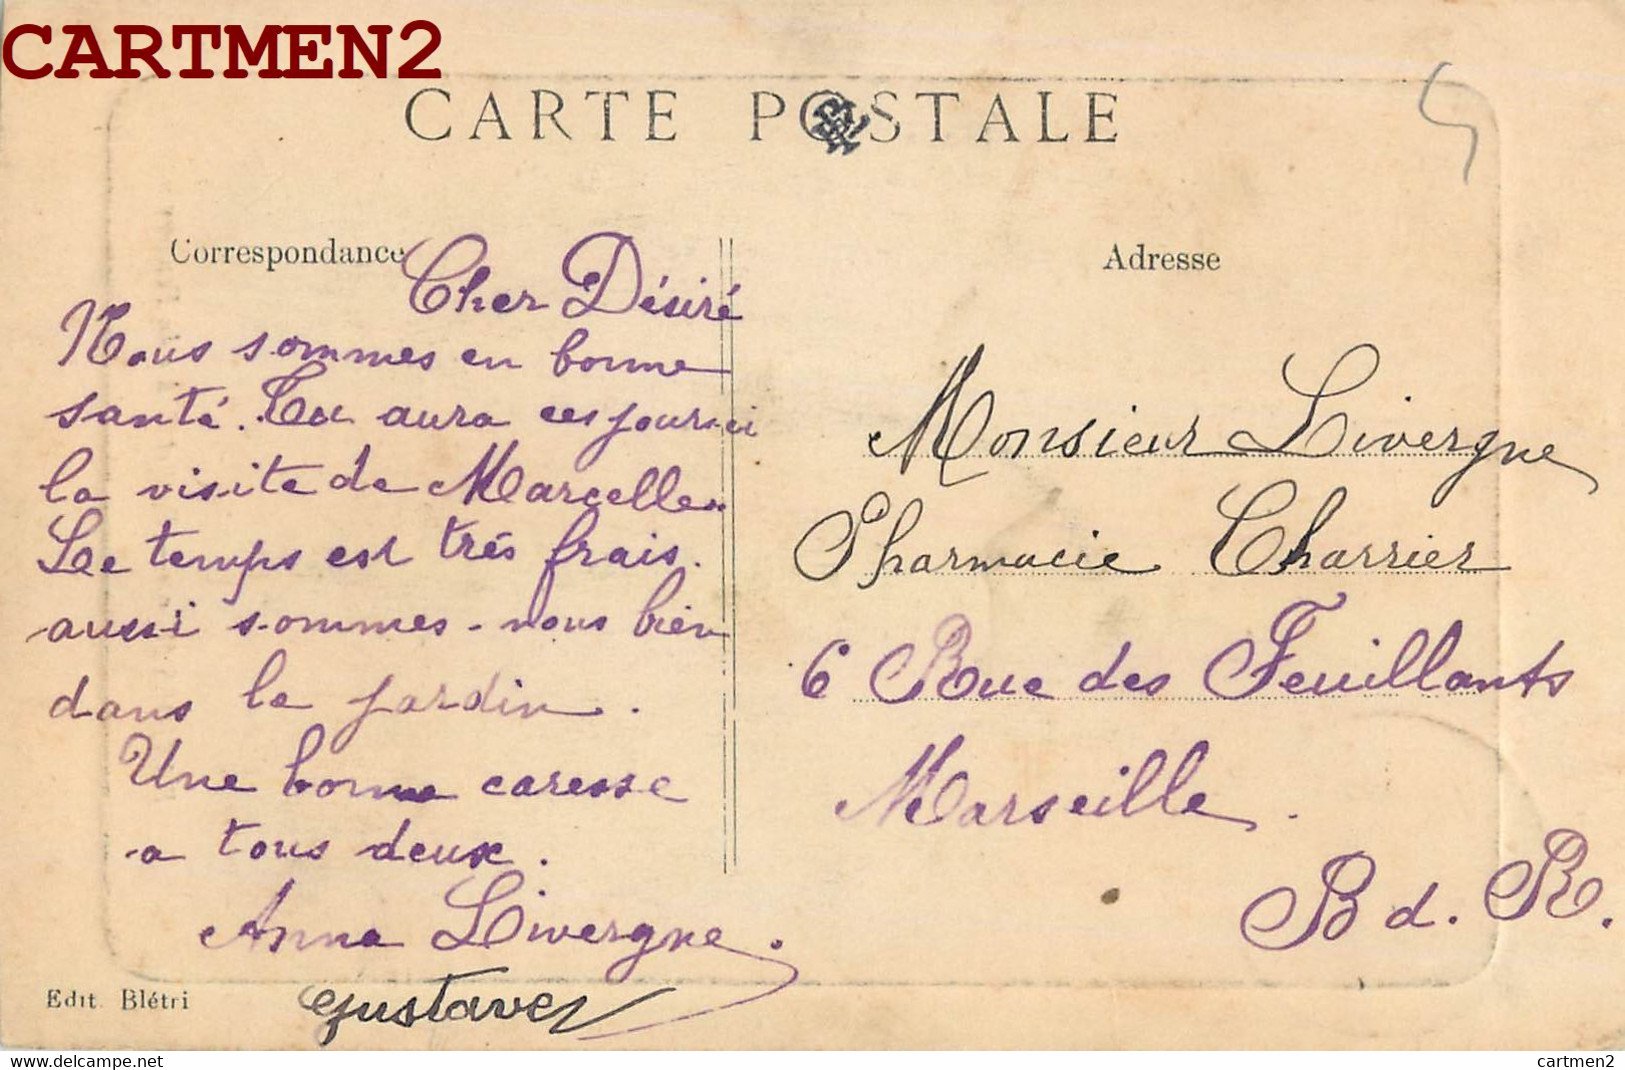 CARTMEN2
CARTE POSTALE
Correspondance
Cher Désiré
Nous sommes en bonne
santé. Tu aura ces jours ci
la visite de Marcelle
Le temps est très frais.
aussi sommes-nous bien
dans le jardin.
Une bonne caresse
a tous deux.
Anna Livergne.
Gustave
Edit. Blétri
Adresse
Monsieur Livergne
Pharmacie Charrier
6 Rue des Feuillants
Marseille.
B d. R.
www.delcampe.net
cartmen2